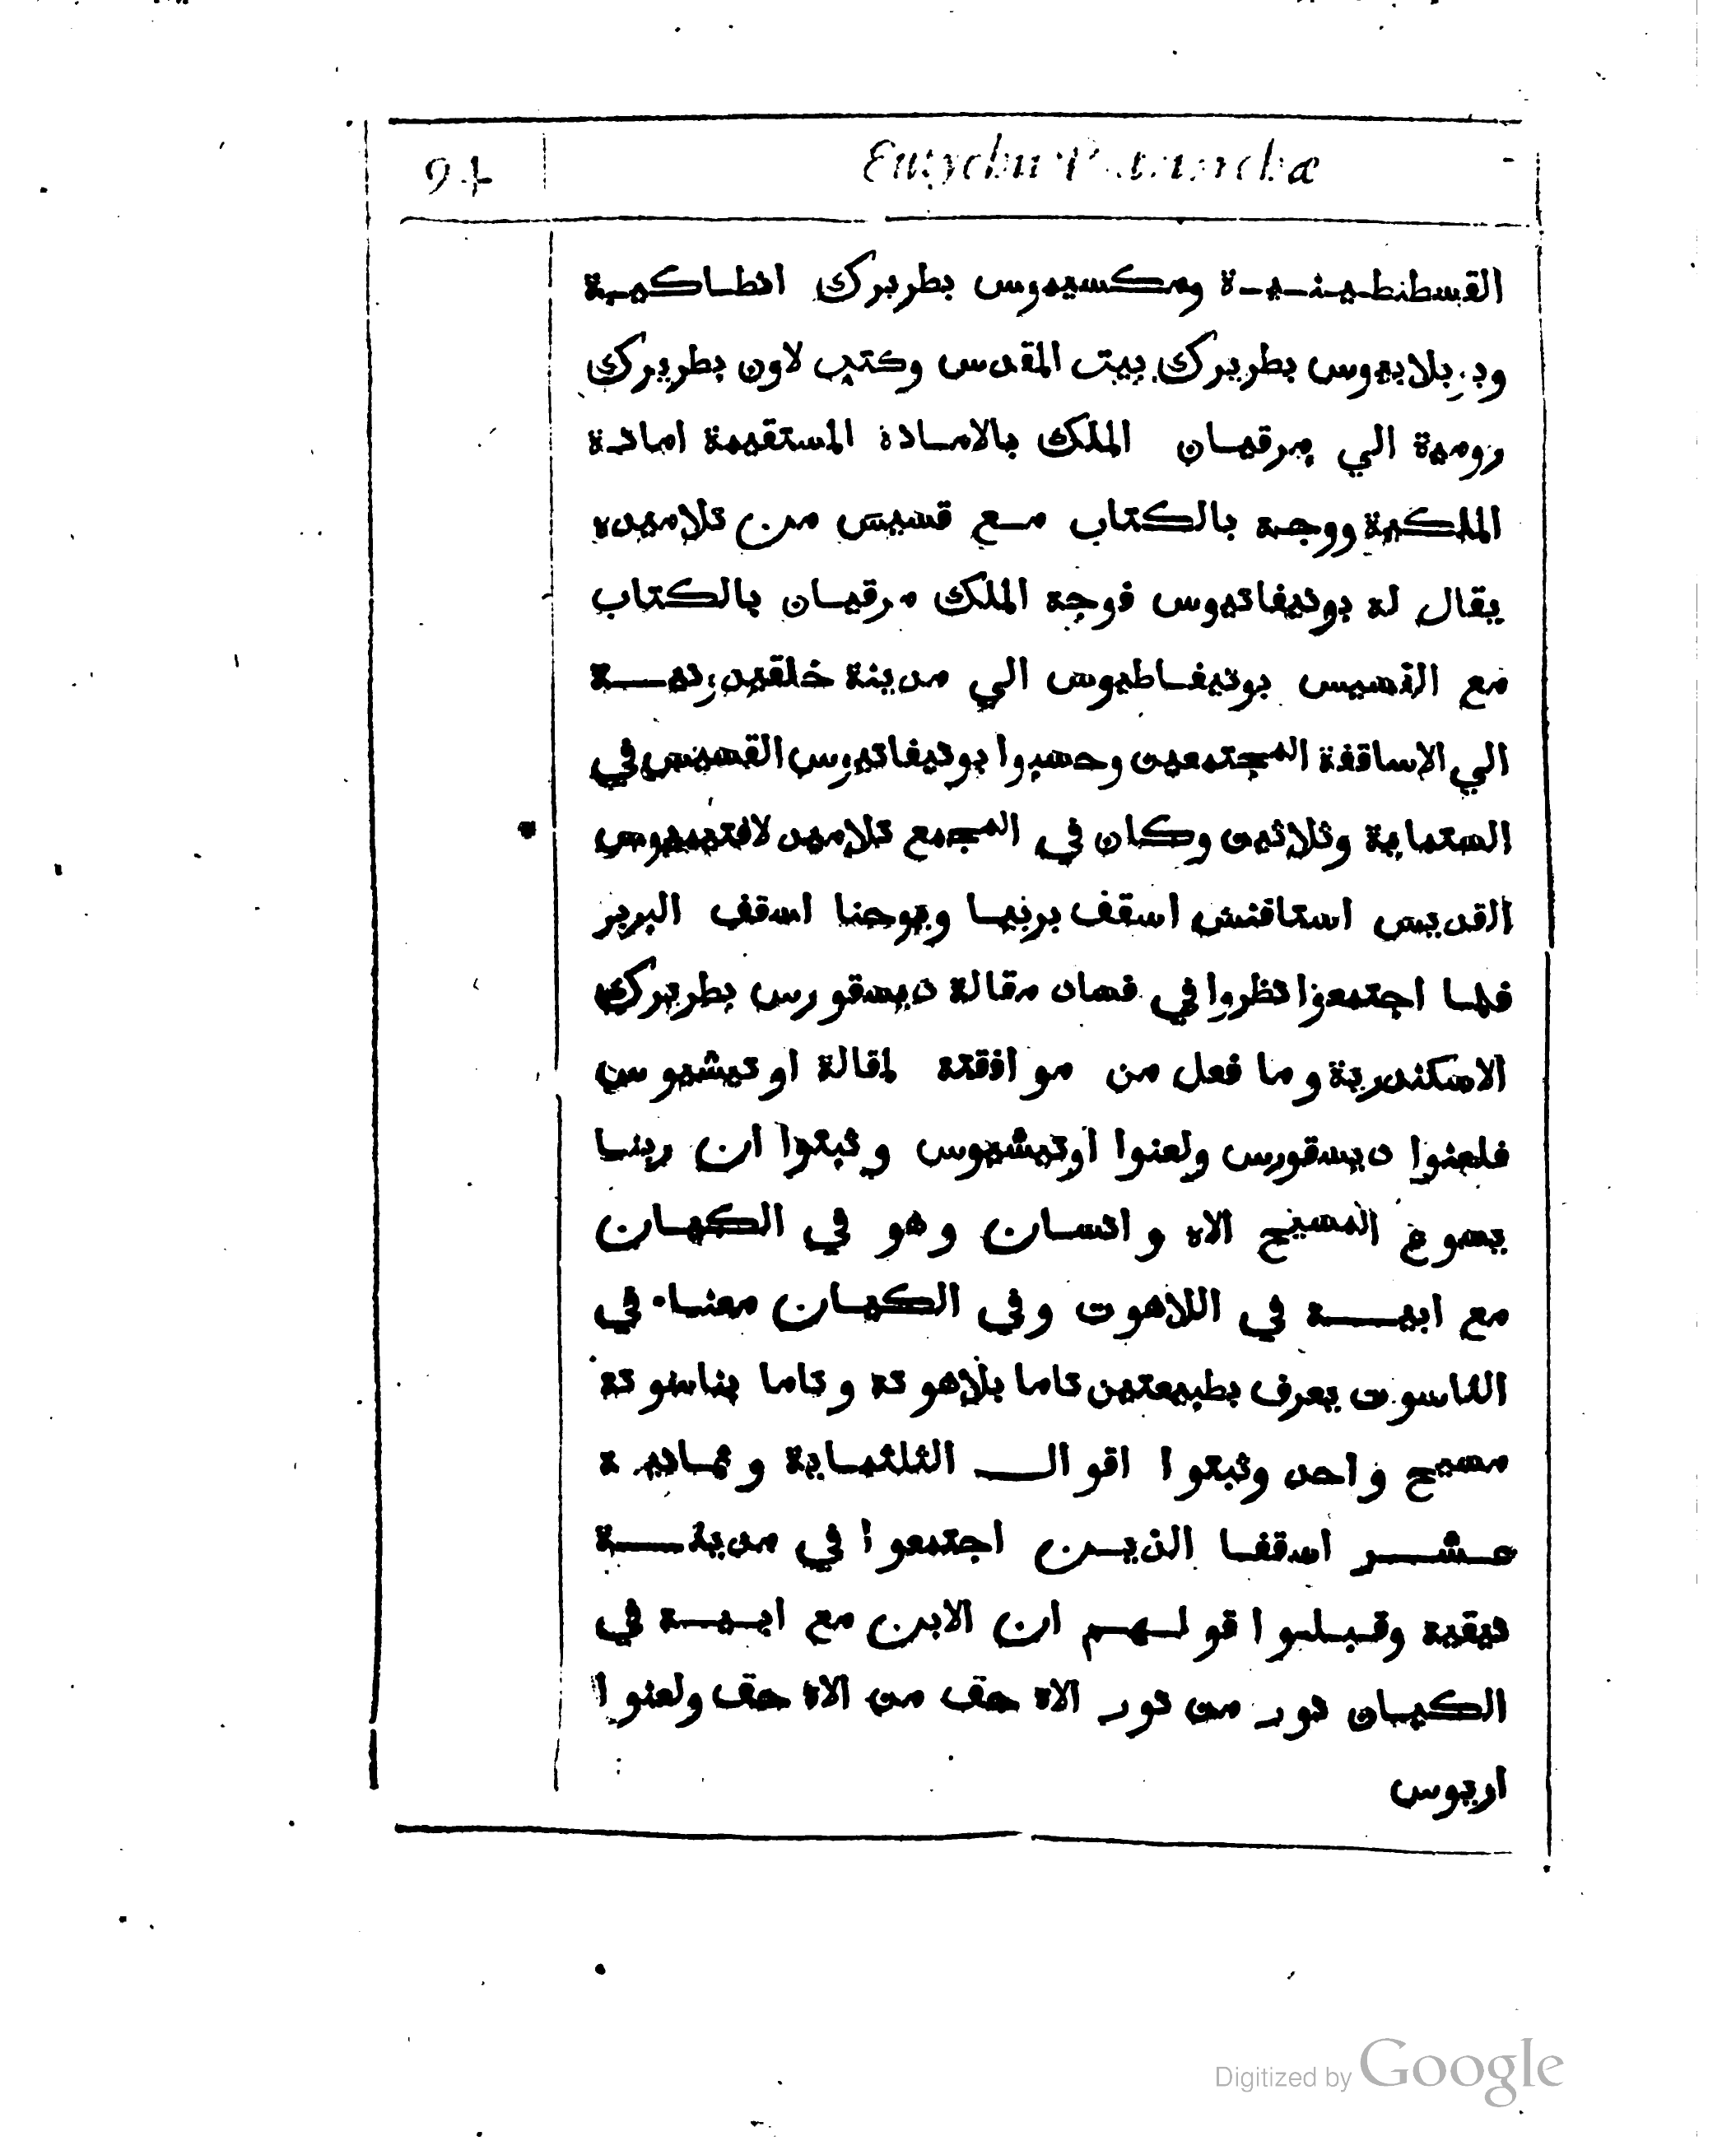 94
Eutychii Patriarchæ
القسطنطينية ومكسيموس بطريرك انطاكية
بطريرك بيت المقدس وكتب لاون بطريرك
رومية الي مرقيان الملك بالامانة المستقيمة امانة
الملكية ووجه بالكتاب مع قسيس من تلاميذه
يقال له بونيفاتيوس فوجه الملك مرقيان بالكتاب
مع القسيس بونيفاطيوس الي مدينة خلقيدونية
الي الاساقفة المجتمعين وحسبوا بونيفاتيوس القسيس في
الستماية وثلاثين وكان في المجمع تلاميد لافتيميوس
القديس اسقف ويوحنا اسقف البربر
فلما اجتمعوا نظروا في فساد مقالة ديسقورس بطريرك
الاسكندرية وما فعل من موافقته لمقالة اوتيشيوس
فلعنوا ديسقورس ولعنوا اوتيشيوس وثبتوا ان ربنا
يسوع المسيح الاه وانسان وهو في الكيان
مع ابيه في اللاهوت وفي الكيان معنا في
الناسوت يعرف بطبيعتين تاما بلاهوته وتاما بناسوته
مسيح واحد وثبتوا اقوال الثلثماية وثمانية
عشر اسقفا الذين اجتمعوا في مدينة
نيقية وقبلوا قولهم ان الابن مع ابيه في
الكيان نور من نور الاه حق من الاه حق ولعنوا
اريوس
Digitized by Google